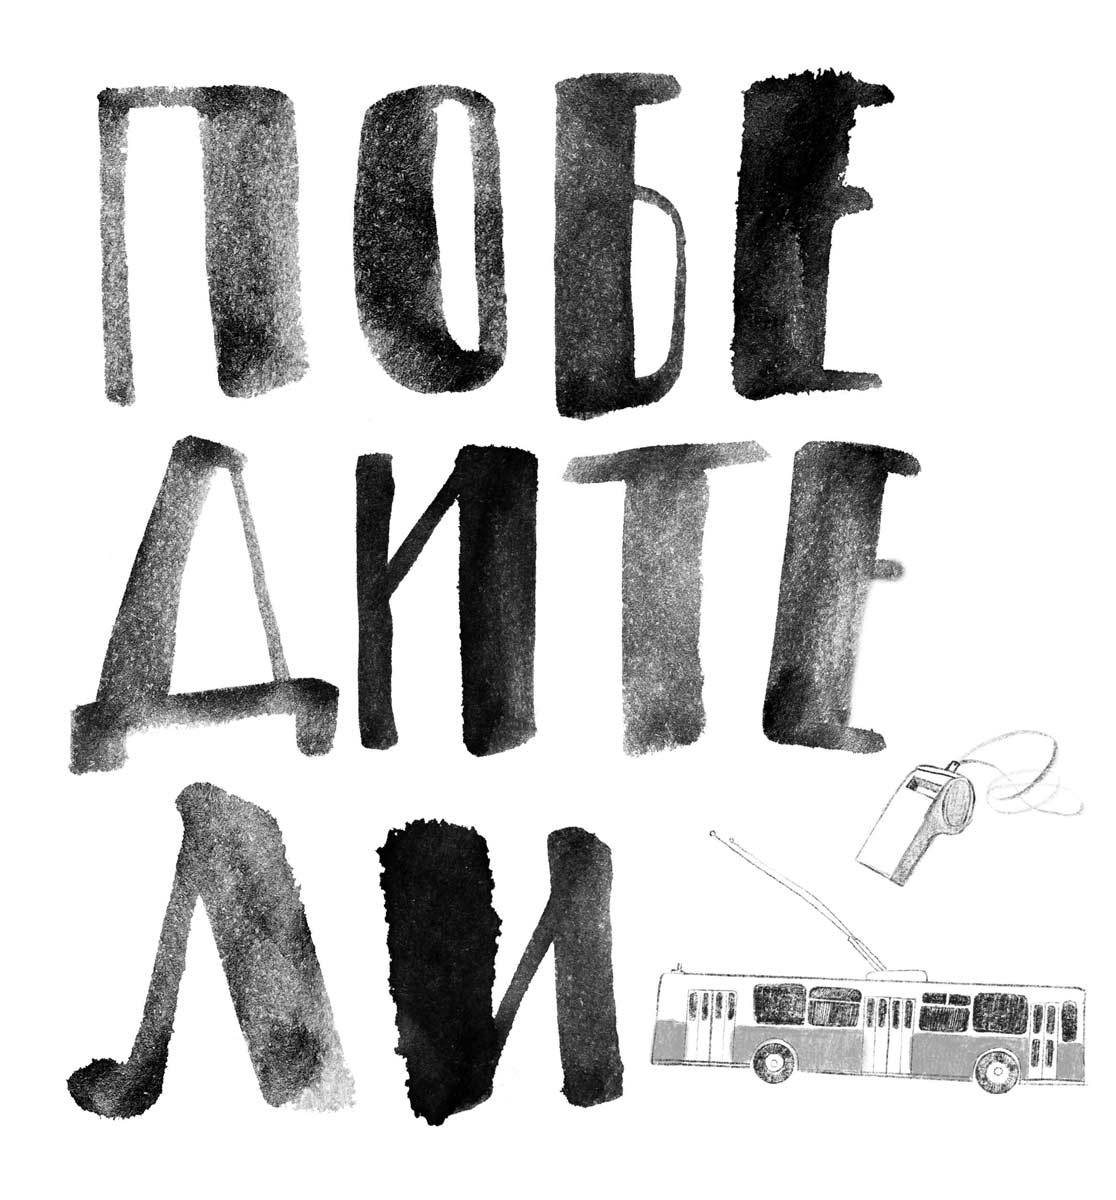 ПОБЕ
ДИТЕ
ЛИ